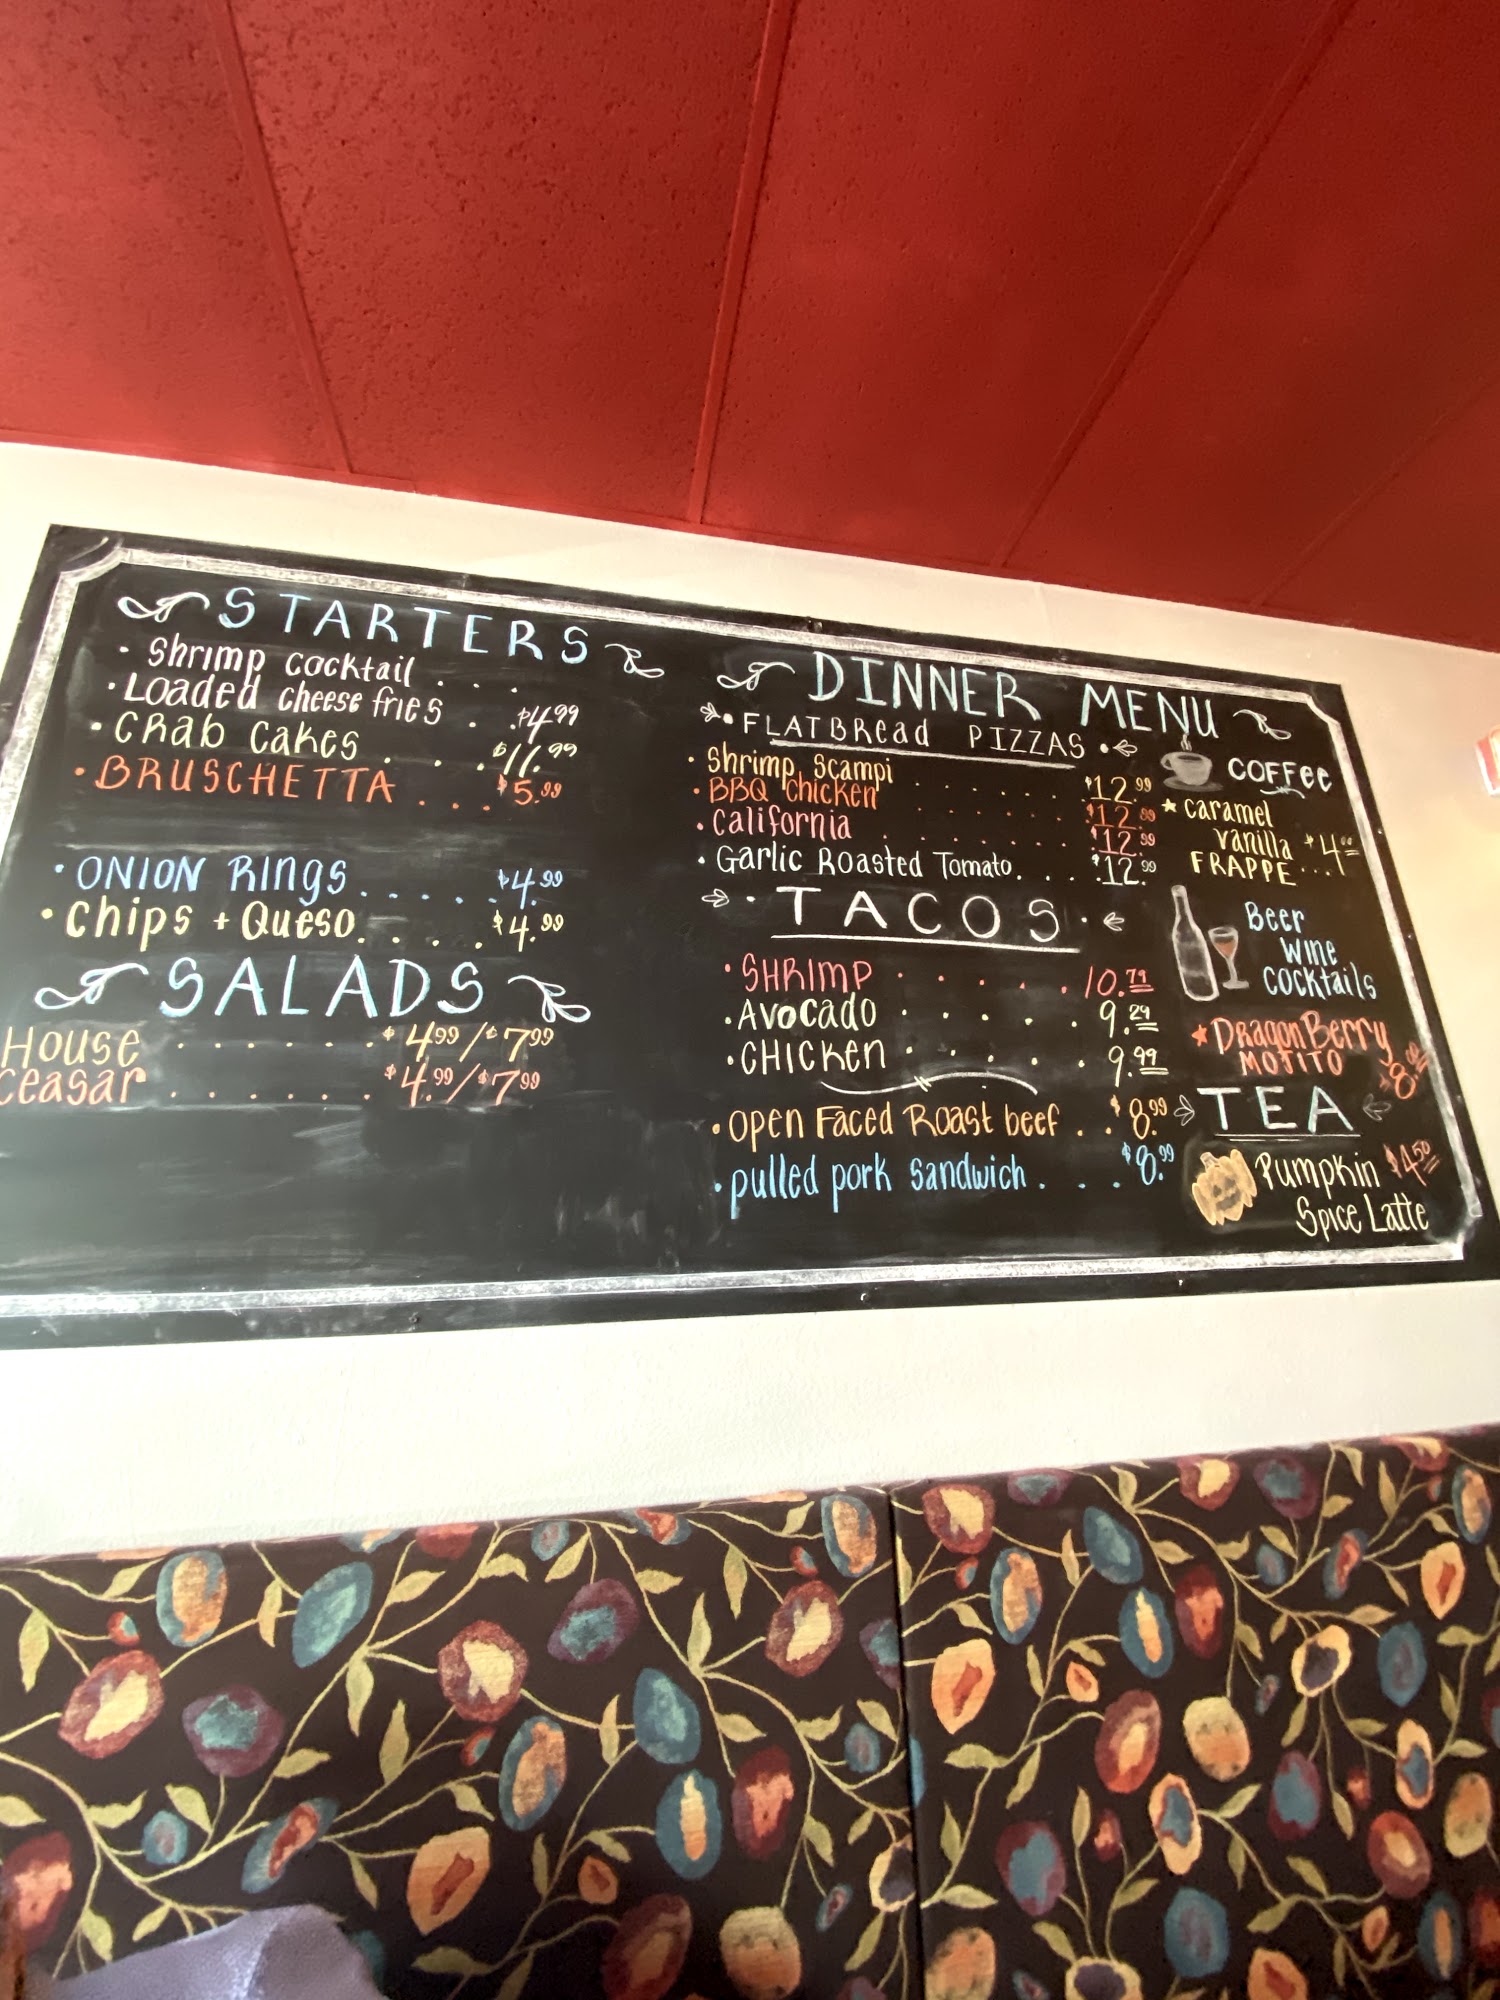 STARTERS
• Shrimp cocktail . . .
• Loaded cheese fries . . $4.99
• Crab Cakes . . . $11.99
• BRUSCHETTA . . . $5.99
• ONION Rings . . . . . $4.99
• Chips + Queso . . . . $4.99
SALADS
HOUSE . . . . . . $4.99/$7.99
Ceasar . . . . . . $4.99/$7.99
DINNER MENU
• FLATBread PIZZAS •
• Shrimp Scampi . . . . . . $12.99
• BBQ Chicken . . . . . . $12.99
• California . . . . . . $12.99
• Garlic Roasted Tomato . . . $12.99
• TACOS •
• SHRIMP . . . . . 10.79
• Avocado . . . . . 9.29
• CHICKEN . . . . . 9.99
• Open Faced Roast beef . . $8.99
• pulled pork sandwich . . . $8.99
COFFee
★ Caramel
Vanilla $4.00
FRAPPE ...
Beer
Wine
Cocktails
★ DragonBerry
MOJITO $8.00
TEA
Pumpkin $4.50
Spice Latte